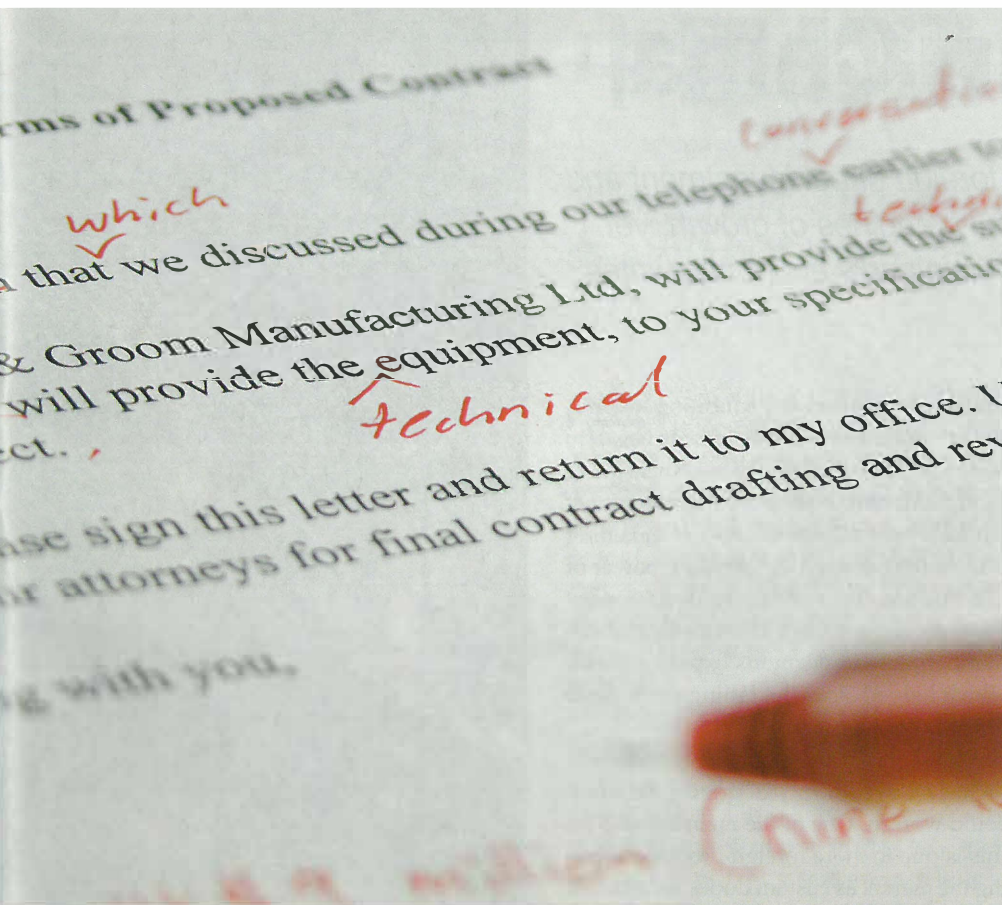 rms of Proposed Contract
conversation
which
that we discussed during our telephone earlier to
techni
& Groom Manufacturing Ltd, will provide the su
will provide the equipment, to your specificatio
technical
ect.
ase sign this letter and return it to my office. U
ur attorneys for final contract drafting and rev
g with you,
million (nine